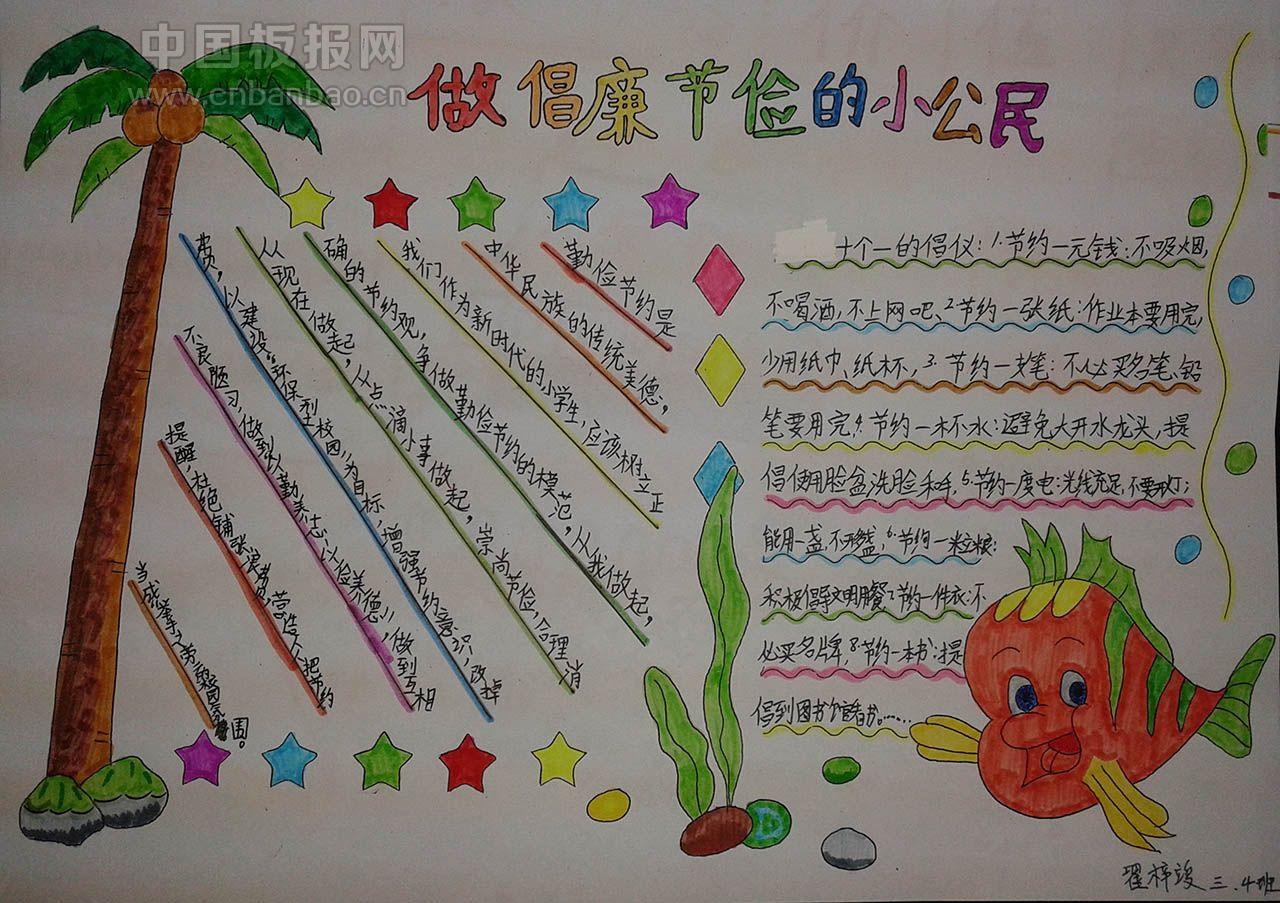 中国板报网
www.cnbanbao.cn
做倡廉节俭的小公民
勤俭节约是
中华民族的传统美德，
我们作为新时代的小学生，应该树立正
确的节约观，争做勤俭节约的模范，从我做起，
从现在做起，从点滴小事做起，崇尚节俭，合理消
费，以建设“环保型校园”为目标，增强节约意识，改掉
不良陋习，做到以勤养志，以俭养德”，做到互相
提醒，杜绝铺张浪费，营造人人把节约
当成
围。
十个一的倡仪：1.节约一元钱：不吸烟，
不喝酒，不上网吧、2.节约一张纸：作业本要用完，
少用纸巾、纸杯，3.节约一支笔：不必买名笔、铅
笔要用完，4.节约一杯水：避免大开水龙头，提
倡使用脸盆洗脸和手，5.节约一度电：光线充足，不要开灯；
能用一盏，不开多盏，6.节约一米粒粮：
积极倡导文明用餐，7.节约一件衣：不
必买名牌，8.节约一本书：提
倡到图书馆看书。……
翟梓竣 三.4班